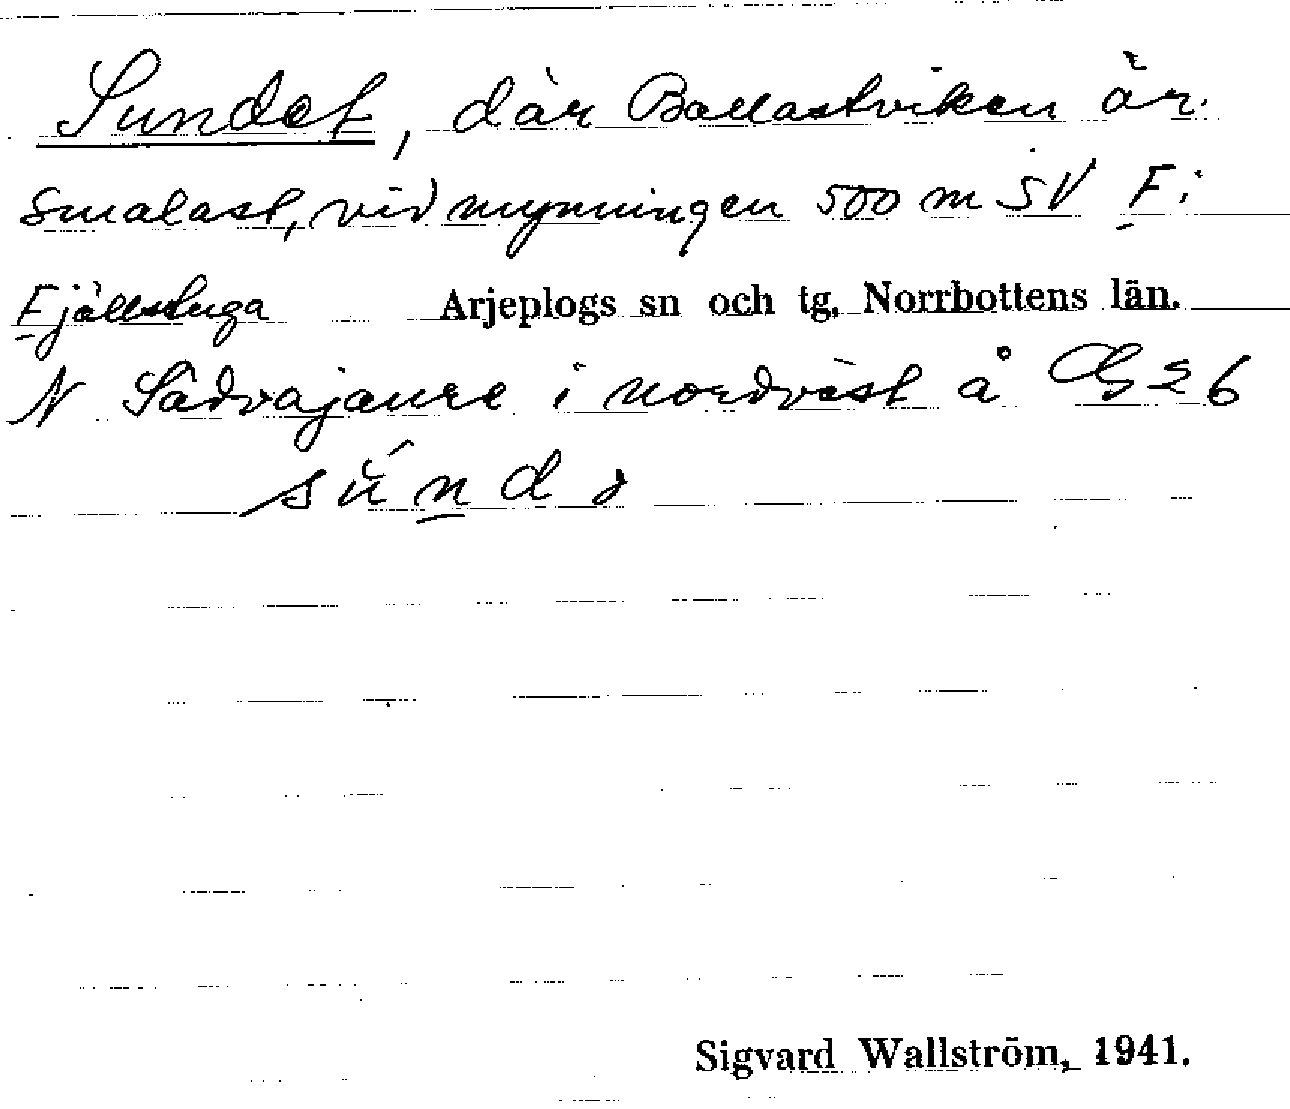 Sundet, där Ballastviken är
smalast, vid mynningen 500 m SV F i
Fjällstuga Arjeplogs sn och tg, Norrbottens län.
N Sädvajaure i nordväst å G 26
Sigvard Wallström, 1941.